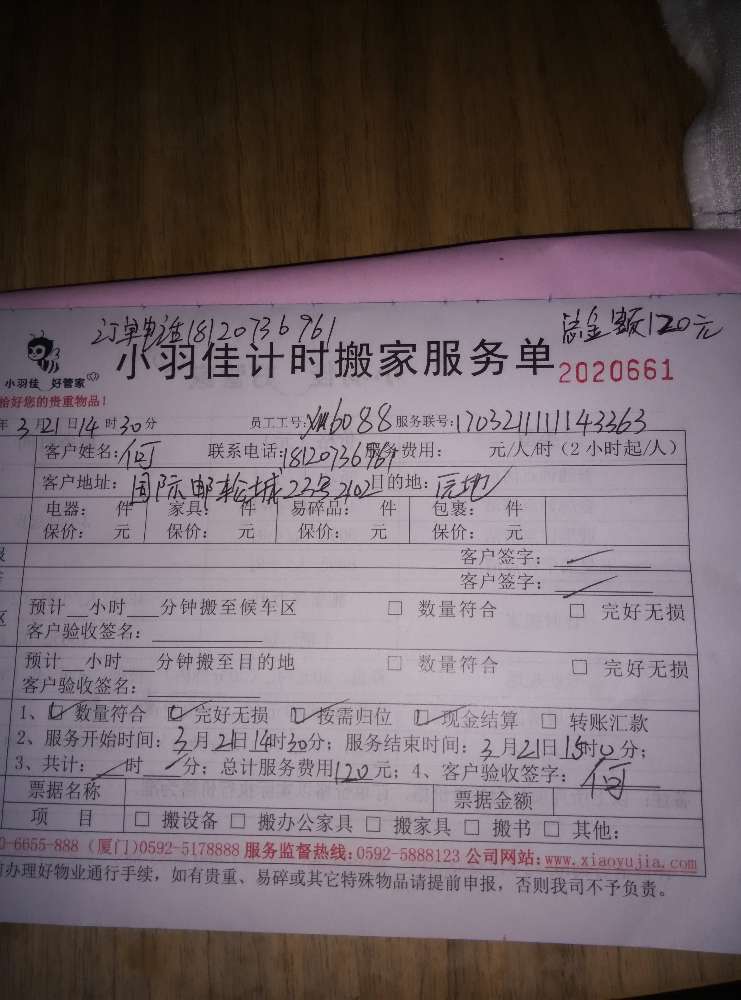 订单电话18120736961
总金额120元
小羽佳 好管家
小羽佳计时搬家服务单
2020661
恰好您的贵重物品!
年3月21日14时30分 员工工号:XM6088 服务联号:170321111143363
客户姓名:何 联系电话:18120736961 服务费用: 元/人/时(2小时起/人)
客户地址:国际邮轮城23号2102 目的地:原地
电器: 件 家具: 件 易碎品: 件 包裹: 件
保价: 元 保价: 元 保价: 元 保价: 元
客户签字:
客户签字:
预计__小时___分钟搬至候车区 □ 数量符合 □ 完好无损
客户验收签名:
预计__小时___分钟搬至目的地 □ 数量符合 □ 完好无损
客户验收签名:
1、☑数量符合 ☑完好无损 ☑按需归位 ☑现金结算 □ 转账汇款
2、服务开始时间:3月21日14时30分;服务结束时间:3月21日15时0分;
3、共计:/时/分;总计服务费用120元;4、客户验收签字:何
票据名称 票据金额
项 目 □ 搬设备 □ 搬办公家具 □ 搬家具 □ 搬书 □ 其他:
0-6655-888 (厦门)0592-5178888 服务监督热线:0592-5888123 公司网站:www.xiaoyujia.com
办理好物业通行手续,如有贵重、易碎或其它特殊物品请提前申报,否则我司不予负责。